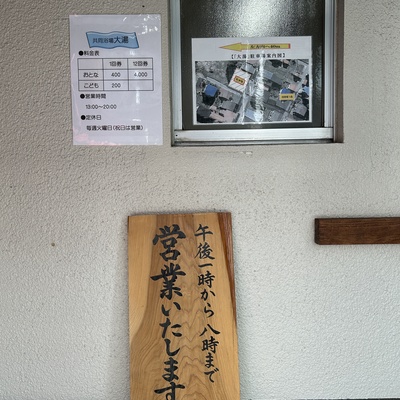 共同浴場 大湯
●料金表
1回券 12回券
おとな 400 4,000
こども 200
●営業時間
13:00～20:00
●定休日
毎週火曜日(祝日は営業)
【「大湯」駐車場案内図】
午後一時から八時まで
営業いたします